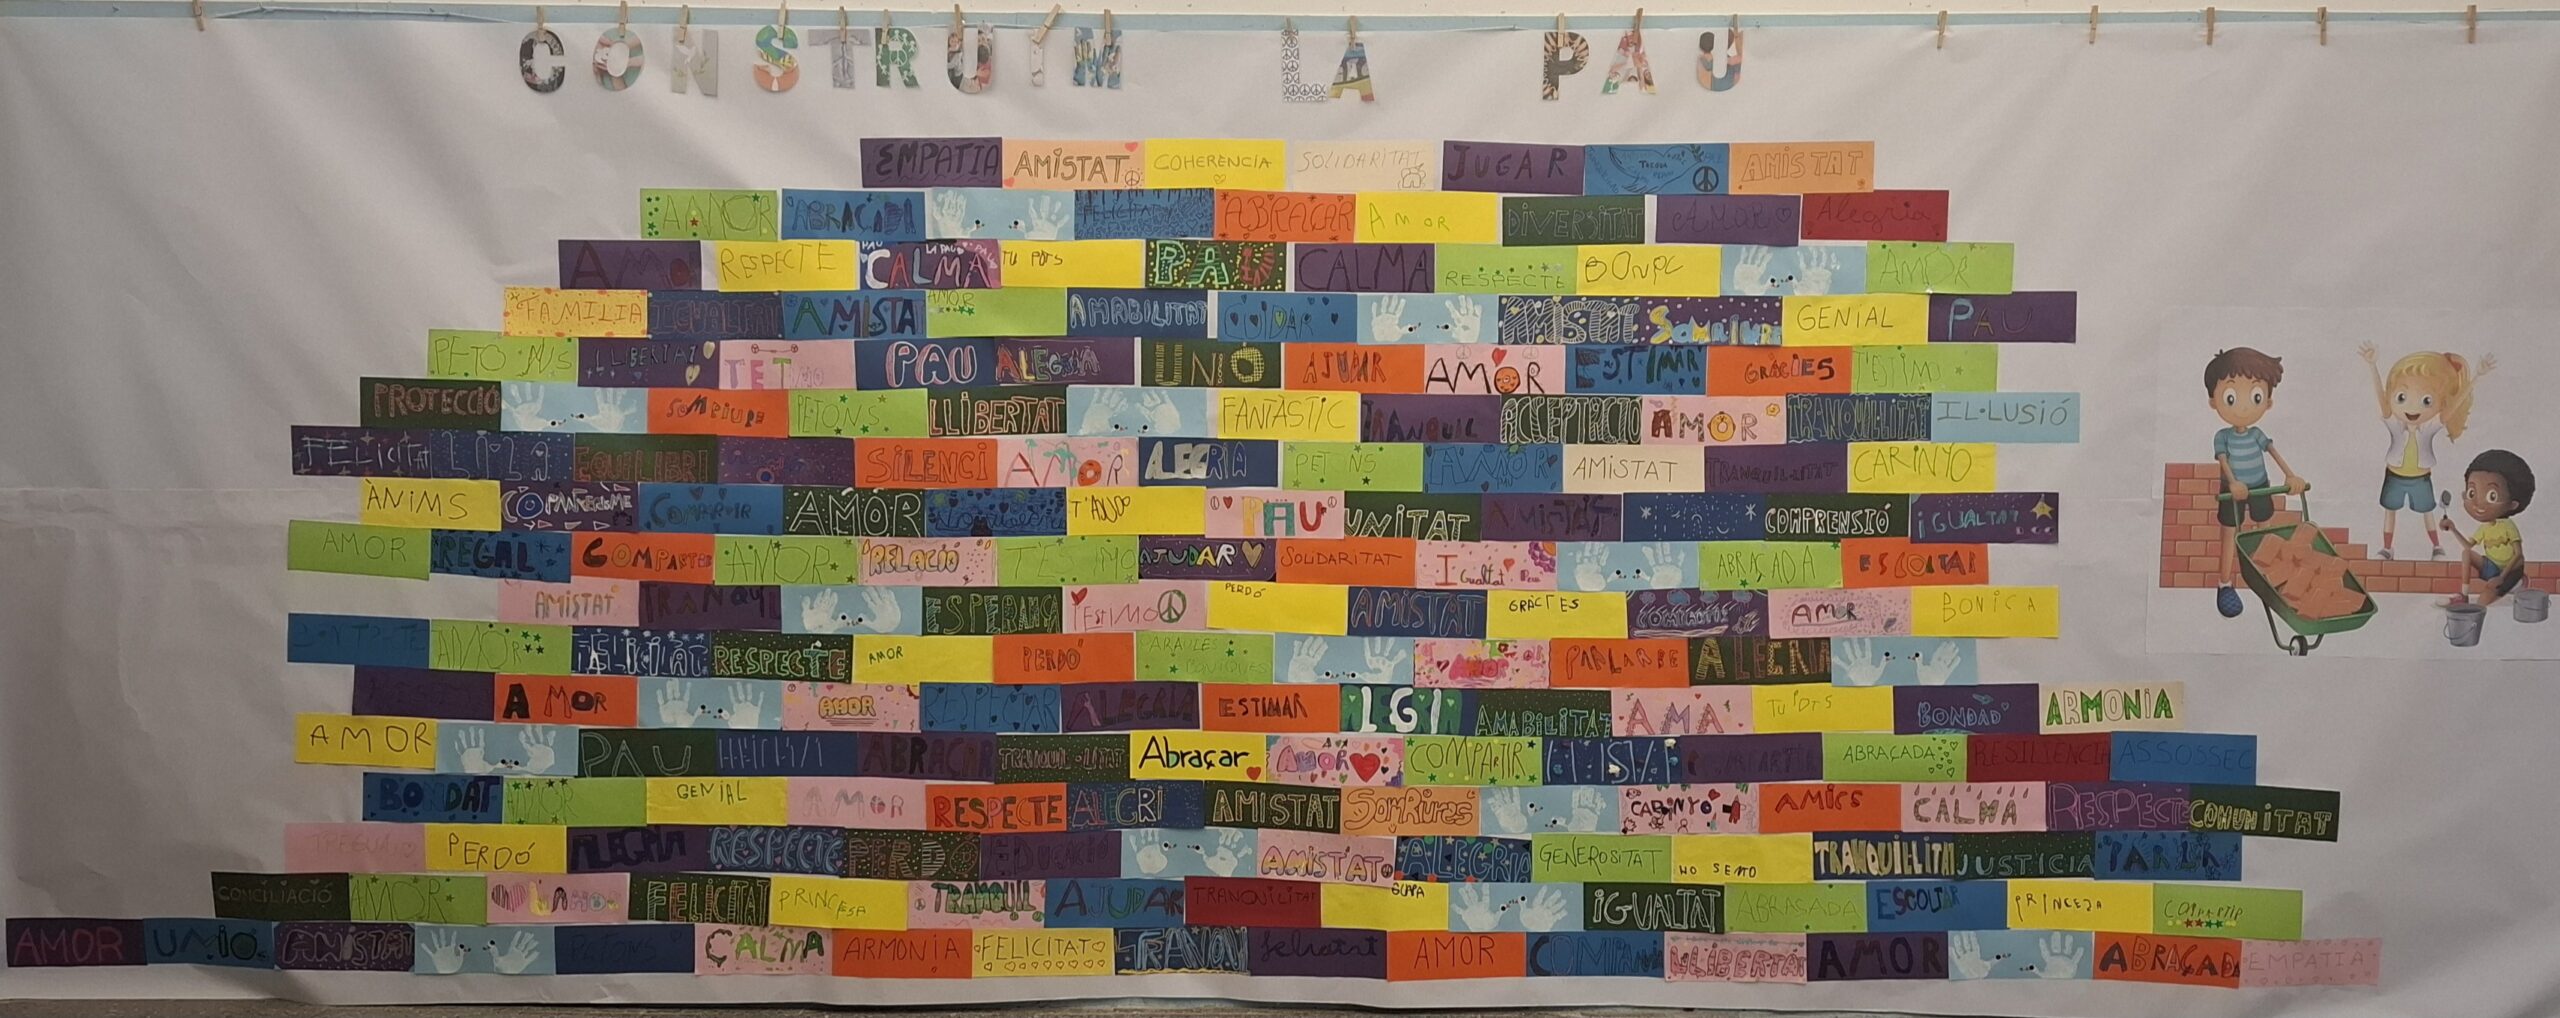 CONSTRUIM LA PAU
EMPATIA AMISTAT COHERENCIA SOLIDARITAT JUGAR AMISTAT
AMOR ABRAÇADA FELICITAT ABRAÇAR AMOR DIVERSITAT AMOR Alegria
AMOR RESPECTE PAU LA PAU PAU CALMA TU POTS PAU CALMA RESPECTE AMOR
FAMILIA IGUALTAT AMISTA AMOR AMABILITAT CUIDAR AMISTAT SOMRIURE GENIAL PAU
PETONS LLIBERTAT PAU ALEGRIA UNIÓ AJUDAR AMOR ESTIMAR GRÀCIES T'ESTIM
PROTECCIÓ SOMRIURE PETONS LLIBERTAT FANTÀSTIC TRANQUIL ACCEPTACIÓ AMOR TRANQUIL·LITAT IL·LUSIÓ
FELICITAT EQUILIBRI SILENCI AMOR ALEGRIA PETONS AMOR AMISTAT TRANQUILLITAT CARINYO
ÀNIMS COMPARTIR AMOR T'AJUDO PAU UNITAT AMISTAT COMPRENSIÓ IGUALTAT
AMOR REGAL COMPARTIR AMOR RELACIÓ T'ESTIMO AJUDAR SOLIDARITAT Igualtat Pau ABRAÇADA ESCOLTAR
AMISTAT TRANQUIL ESPERANÇA T'ESTIMO PERDÓ AMISTAT GRÀCIES AMOR BONICA
AMOR FELICITAT RESPECTE AMOR PERDÓ PARAULES BONIQUES AMOR PARLAR BE ALEGRIA
AMOR AMOR RESPECTAR ALEGRIA ESTIMAR ALEGRIA AMABILITAT AMA TU POTS BONDAD ARMONIA
AMOR PAU ABRAÇAR TRANQUIL·LITAT Abraçar AMOR COMPARTIR COMPARTIR ABRAÇADA RESILIÈNCIA ASSOSSEC
BONDAT AMOR GENIAL AMOR RESPECTE ALEGRI AMISTAT SOMRIURES CARINYO AMICS CALMA RESPECTE COMUNITAT
PERDÓ ALEGRIA RESPECTE PERDÓ EDUCACIÓ AMISTAT ALEGRIA GENEROSITAT HO SENTO TRANQUILLITAT JUSTÍCIA PARLAR
CONCILIACIÓ AMOR FELICITAT PRINCESA TRANQUIL AJUDAR TRANQUILITAT GUAPA IGUALTAT ABRASADA ESCOLTAR PRINCEZA COMPARTIR
AMOR UNIÓ AMISTAT PETONS CALMA ARMONIA FELICITAT felicitat AMOR LLIBERTAT AMOR ABRAÇADA EMPATIA